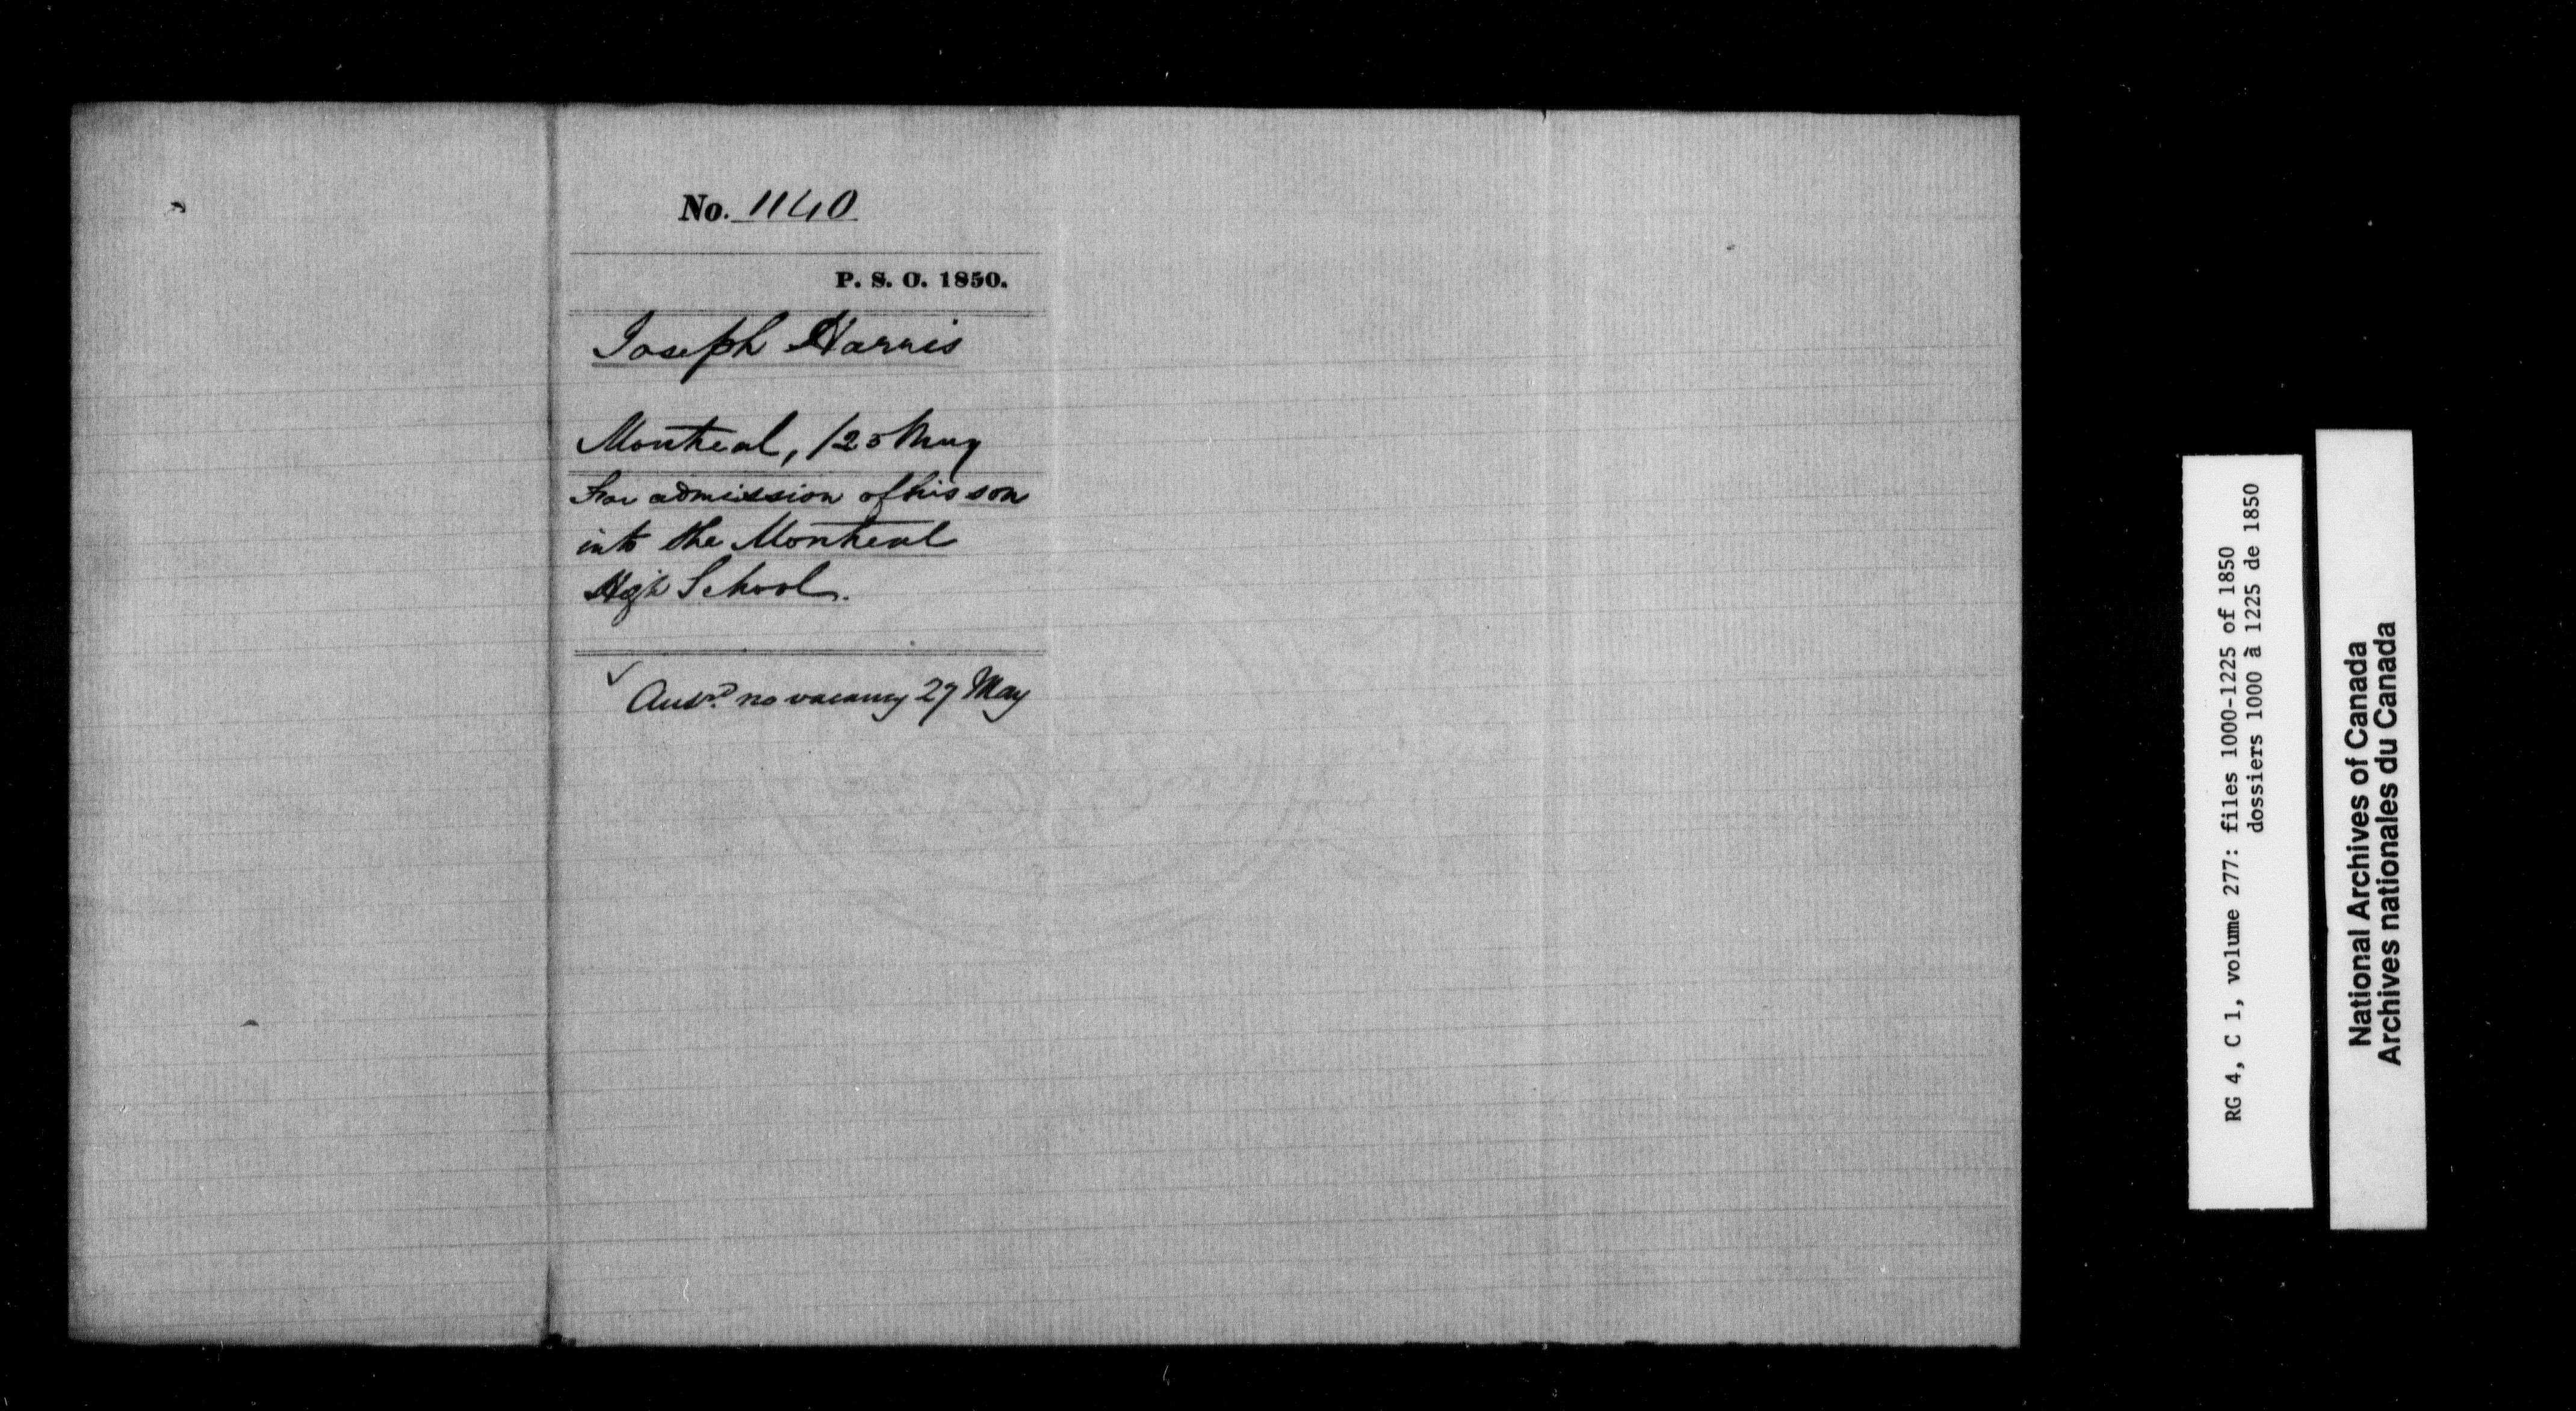 No. 1140
P. S. O. 1850.
Joseph Harris
Montreal, 25 May
For admission of his son
into the Montreal
High School.
Answd. no vacancy 27 May
RG 4, C 1, volume 277: files 1000-1225 of 1850
dossiers 1000 à 1225 de 1850
National Archives of Canada
Archives nationales du Canada